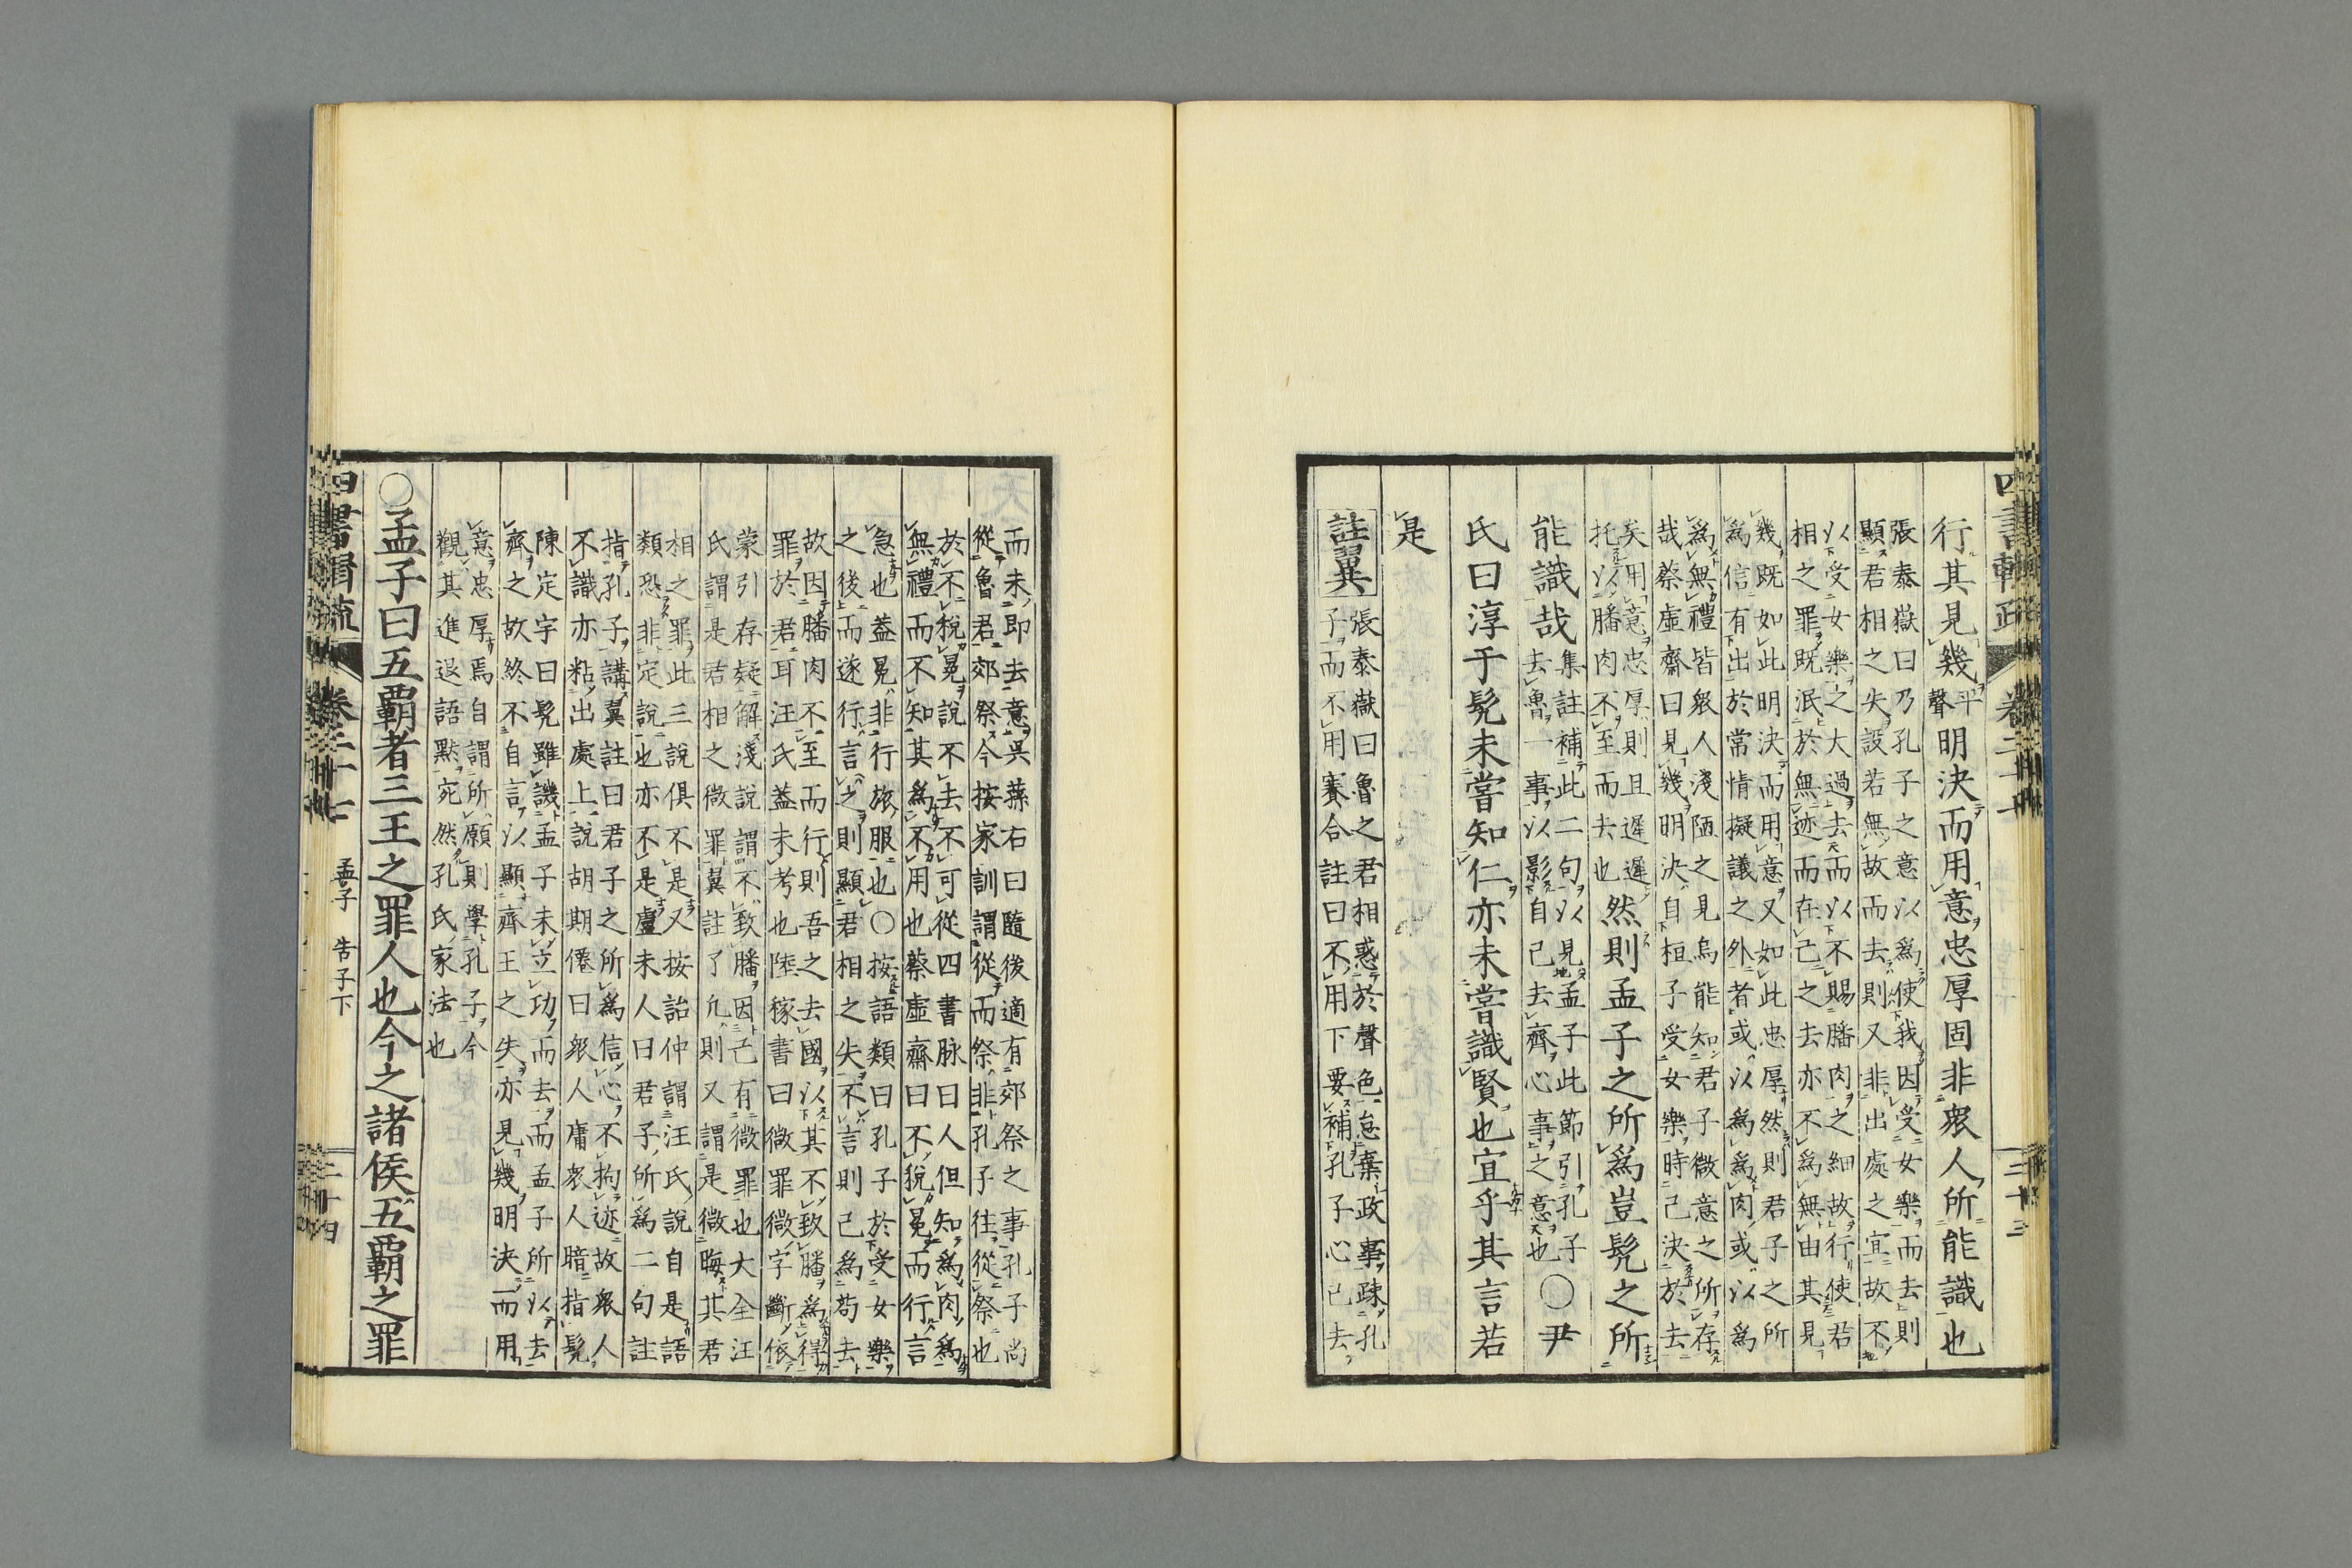 行其見幾平聲明決而用意忠厚固非衆人所能識也
張泰嶽曰乃孔子之意以爲使我因受女樂而去則
顯君相之失設若無故而去則又非出處之宜故不
以受女樂之大過去而以不賜膰肉之細故行使君
相之罪既泯於無迹而在己之去亦不爲無由其見
幾既如此明決而用意又如此忠厚然則君子之所
爲信有出於常情擬議之外者或以爲爲肉或以爲
爲無禮皆衆人淺陋之見烏能知君子微意之所存
哉蔡虛齋曰見幾明決自桓子受女樂時己決於去
矣用意忠厚則且遲遲
托以膰肉不至而去也
然則孟子之所爲豈髡之所
能識哉
集註補此二句以見孟子此節引孔子
去魯一事以影自己去齊心事之意也
〇尹
氏曰淳于髡未嘗知仁亦未嘗識賢也宜乎其言若
是
註翼
張泰嶽曰魯之君相惑於聲色怠棄政事疎孔
子而不用賽合註曰不用下要補孔子心已去
而未即去意吳蓀右曰隨後適有郊祭之事孔子尚
從魯君郊祭今按家訓謂從而祭非孔子往從祭也
於不稅冕說不去不可從四書脉曰人但知爲肉爲
無禮而不知其爲不用也蔡虛齋曰不稅冕而行言
急也蓋冕非行旅服也〇按語類曰孔子於受女樂
之後而遂行言之則顯君相之失不言則己爲苟去
故因膰肉不至而行則吾之去國以其不致膰爲得
罪於君耳汪氏蓋未考也陸稼書曰微罪微字斷依
蒙引存疑解淺說謂不致膰因己有微罪也大全汪
氏謂是君相之微罪翼註了凡則又謂是微晦其君
相之罪此三說俱不是又按詒仲謂汪氏說自是語
類恐非定說也亦不是盧未人曰君子所爲二句註
指孔子講翼註曰君子之所爲信心不拘迹故衆人
不識亦粘出處上說胡期僊曰衆人庸衆人暗指髡
陳定宇曰髡雖譏孟子未立功而去而孟子所以去
齊之故終不自言以顯齊王之失亦見幾明決而用
意忠厚焉自謂所願則學孔子今
觀其進退語默宛然孔氏家法也
〇孟子曰五覇者三王之罪人也今之諸侯五覇之罪
卷二十七
孟子 告子下
二十四